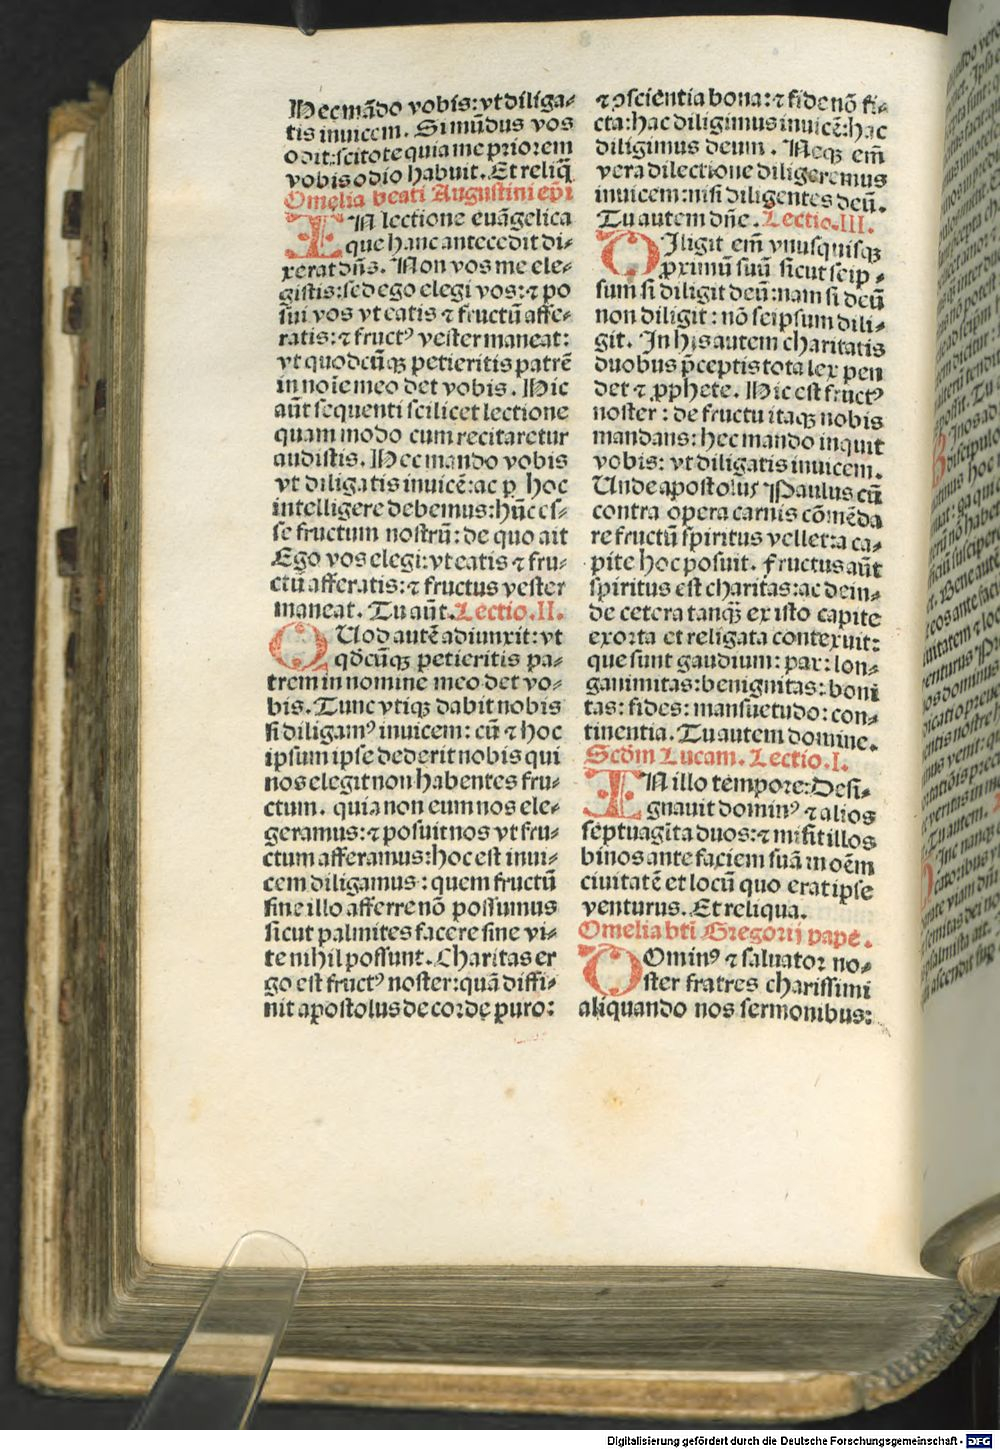 Hec mādo vobis: vt diliga⸗
tis inuicem. Si mūdus vos
odit: scitote quia me priorem
vobis odio habuit. Et reliq̄
Omelia beati Augustini ep̄i
IN lectione euāgelica
que hanc antecedit di⸗
xerat dn̄s. Non vos me ele⸗
gistis: sed ego elegi vos: ⁊ po
sui vos vt eatis ⁊ fructū affe⸗
ratis: ⁊ fructꝰ vester maneat:
vt quodcūqꝫ petieritis patrē
in noīe meo det vobis. Hic
aūt sequenti scilicet lectione
quam modo cum recitaretur
audistis. Hec mando vobis
vt diligatis inuicē: ac ꝑ hoc
intelligere debemus: hūc es⸗
se fructum nostrū: de quo ait
Ego vos elegi: vt eatis ⁊ fru⸗
ctū afferatis: ⁊ fructus vester
maneat. Tu aūt. Lectio. II.
QUod autē adiunxit: vt
qd̄cūqꝫ petieritis pa⸗
trem in nomine meo det vo⸗
bis. Tunc vtiqꝫ dabit nobis
si diligamꝰ inuicem: cū ⁊ hoc
ipsum ipse dederit nobis qui
nos elegit non habentes fru⸗
ctum. quia non eum nos ele⸗
geramus: ⁊ posuit nos vt fru⸗
ctum afferamus: hoc est inui⸗
cem diligamus: quem fructū
sine illo afferre nō possumus
sicut palmites facere sine vi⸗
te nihil possunt. Charitas er
go est fructꝰ noster: quā diffi⸗
nit apostolus de corde puro:
⁊ ꝯscientia bona: ⁊ fide nō fi⸗
cta: hac diligimus inuicē: hac
diligimus deum. Neqꝫ em̄
vera dilectione diligeremus
inuicem: nisi diligentes deū.
Tu autem dn̄e. Lectio. III.
DIligit em̄ vnusquisqꝫ
ꝓximū suū sicut seip⸗
sum si diligit deū: nam si deū
non diligit: nō seipsum dili⸗
git. In his autem charitatis
duobus p̄ceptis tota lex pen
det ⁊ ꝓphete. Hic est fructꝰ
noster: de fructu itaqꝫ nobis
mandans: hec mando inquit
vobis: vt diligatis inuicem.
Unde apostolus Paulus cū
contra opera carnis cōmēda
re fructū spiritus vellet: a ca⸗
pite hoc posuit. fructus aūt
spiritus est charitas: ac dein⸗
de cetera tanqꝫ̄ ex isto capite
exorta et religata contexuit:
que sunt gaudium: pax: lon⸗
ganimitas: benignitas: boni
tas: fides: mansuetudo: con⸗
tinentia. Tu autem domine.
Scd̄m Lucam. Lectio. I.
IN illo tempore: Desi⸗
gnauit dominꝰ ⁊ alios
septuagīta duos: ⁊ misit illos
binos ante faciem suā in oēm
ciuitatē et locū quo erat ipse
venturus. Et reliqua.
Omelia bt̄i Gregorij pape.
DOminꝰ ⁊ saluator no⸗
ster fratres charissimi
aliquando nos sermonibus:
Digitalisierung gefördert durch die Deutsche Forschungsgemeinschaft - DFG